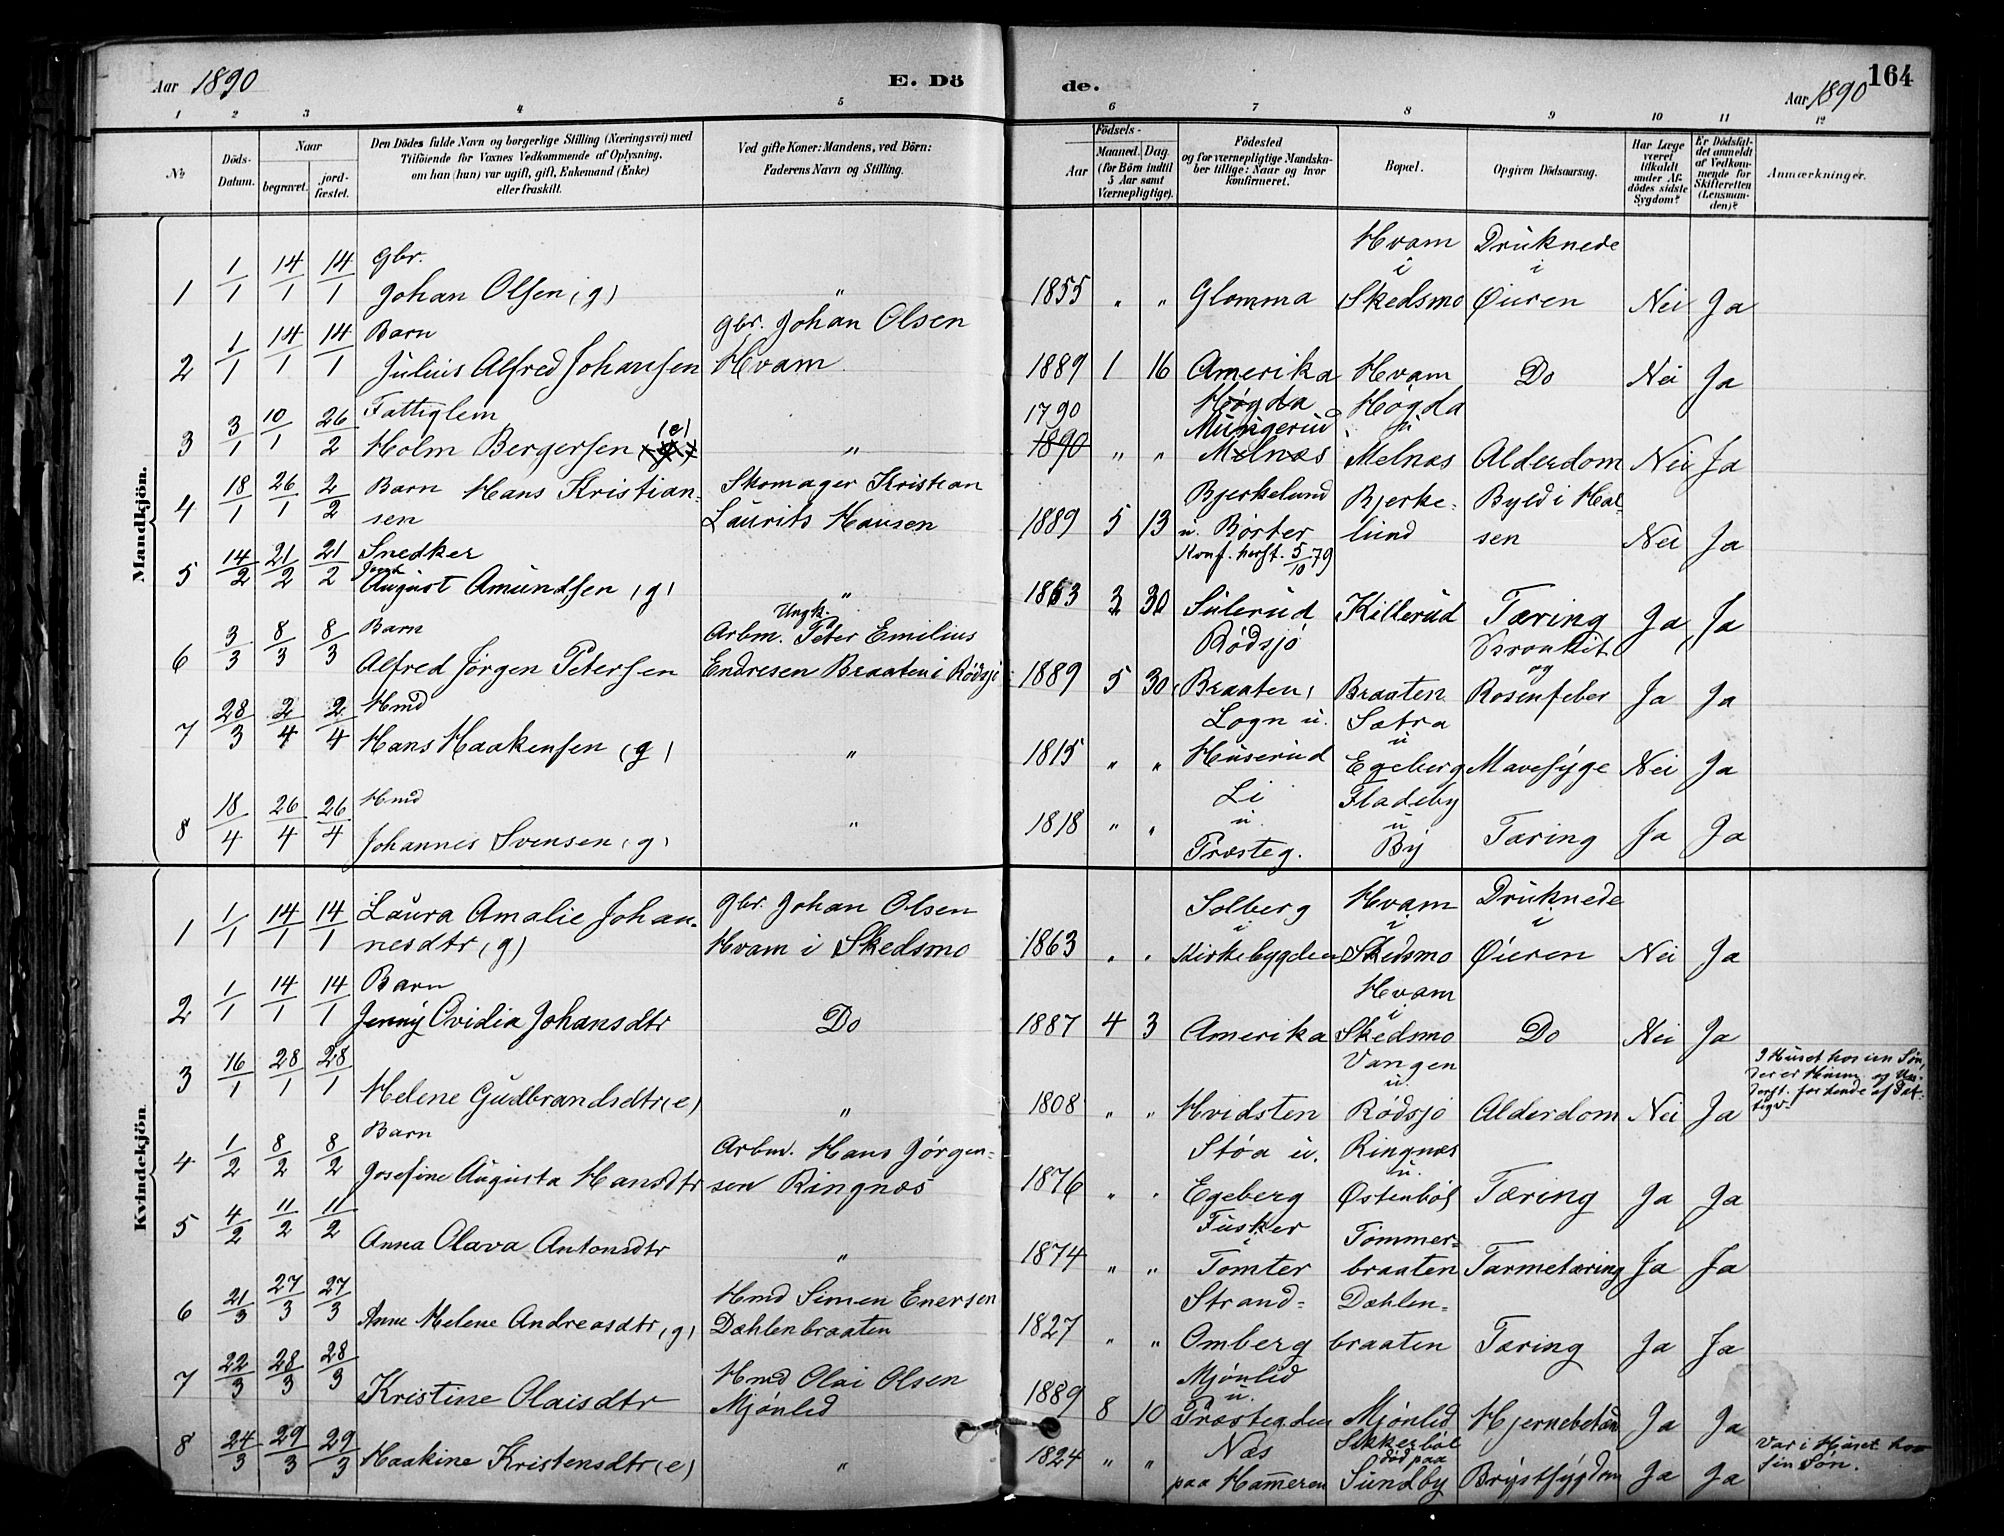 Aar 1890 E. Dö de. Aar 1890 164
1 2 3 4 5 6 7 8 9 10 11 12
№ Döds-Datum. Naar begravet. jord-fæstet. Den Dödes fulde Navn og borgerlige Stilling (Næringsvei) med Tilföiende for Voxnes Vedkommende af Oplysning, om han (hun) var ugift, gift, Enkemand (Enke) eller fraskilt. Ved gifte Koner: Mandens, ved Börn: Faderens Navn og Stilling. Födsels- Aar Maaned. Dag. (for Börn indtil 5 Aar samt Værnepligtige). Födested og for værnepligtige Mandska-ber tillige: Naar og hvor konfirmeret. Bopæl. Opgiven Dödsaarsag. Har Læge været tilkaldt under Af-dödes sidste Sygdom? Er Dödsfal-det anmeldt af Vedkom-mende for Skifteretten (Lensman-den)? Anmærkninger.
Mandkjön.
1 1/1 14/1 14/1 Gbr. Johan Olsen (g) " 1855 " " Glomma Hvam i Skedsmo Druknede i Øieren Nei Ja
2 1/1 14/1 14/1 Barn Julius Alfred Johansen Gbr. Johan Olsen Hvam 1889 1 16 Amerika Hvam Do Nei Ja
3 3/1 10/1 26/2 Fattiglem Holm Bergersen (e) " 1790 1890 " " Høgda Mungerud Melnæs Høgda u Melnæs Alderdom Nei Ja
4 18/1 26/1 2/2 Barn Hans Kristian-sen Skomager Kristian Laurits Hansen 1889 5 13 Bjerkelund u. Børter Bjerke-lund Byld i Hal-sen Nei Ja
5 14/2 21/2 21/2 Snedker August Amundsen (g) " 1863 3 30 Konf. herst. 5/10 79 Sulerud Killerud Tæring Ja Ja
6 3/3 8/3 8/3 Barn Alfred Jørgen Petersen Ungk. Arbm. Peter Emilius Endresen Braaten i Rødsjø 1889 5 30 Rødsjø Braaten Braaten Bronkit og Rosenfeber Ja Ja
7 28/3 2/4 2/4 Hmd Hans Haakensen (g) " 1815 " " Logn u. Huserud Sætra u Egeberg Mavesyge Nei Ja
8 18/4 26/4 26/4 Hmd Johannes Svensen (g) " 1818 " " Li u. Præsteg. Fladeby u By Tæring Ja Ja
Kvindekjön.
1 1/1 14/1 14/1 Laura Amalie Johan-nesdtr (g) Gbr. Johan Olsen Hvam i Skedsmo 1863 " " Solberg i Kirkebygden Hvam i Skedsmo Druknede i Øieren Nei Ja
2 1/1 14/1 14/1 Barn Jenny Ovidia Johansdtr Do 1887 4 3 Amerika Hvam i Skedsmo Do Nei Ja
3 16/1 28/1 28/1 Helene Gudbrandsdtr (e) " 1808 " " Hvidsten Vangen u. Rødsjø Alderdom Nei Ja I Huset hos en Søn,
4 1/2 8/2 8/2 Barn Josefine Augusta Hansdtr Arbm. Hans Jørgen-sen Ringnæs 1876 " " Støa u. Egeberg Ringnæs u. Østenbøl Tæring Ja Ja
5 4/2 11/2 11/2 Anna Olava Antonsdtr " 1874 " " Fusker i Tomter Tømmer-braaten Tarmetæring Ja Ja
6 21/3 27/3 27/3 Anne Helene Andreasdtr (g) Hmd Simen Enersen Dæhlenbraaten 1827 " " Strand-Omberg Dæhlen-braaten Tæring Ja Ja
7 22/3 28/3 28/3 Kristine Olaisdtr Hmd Olai Olsen Mjønlid 1889 8 10 Mjønlid u. Præstegden Mjønlid Hjernebetæn Ja Ja
8 24/3 29/3 29/3 Haakine Kristensdtr (e) " 1824 " " Næs paa Hammeren Sikkerbøl død paa Sundby Brystsygdom Ja Ja Var i Huset hos sin Søn.